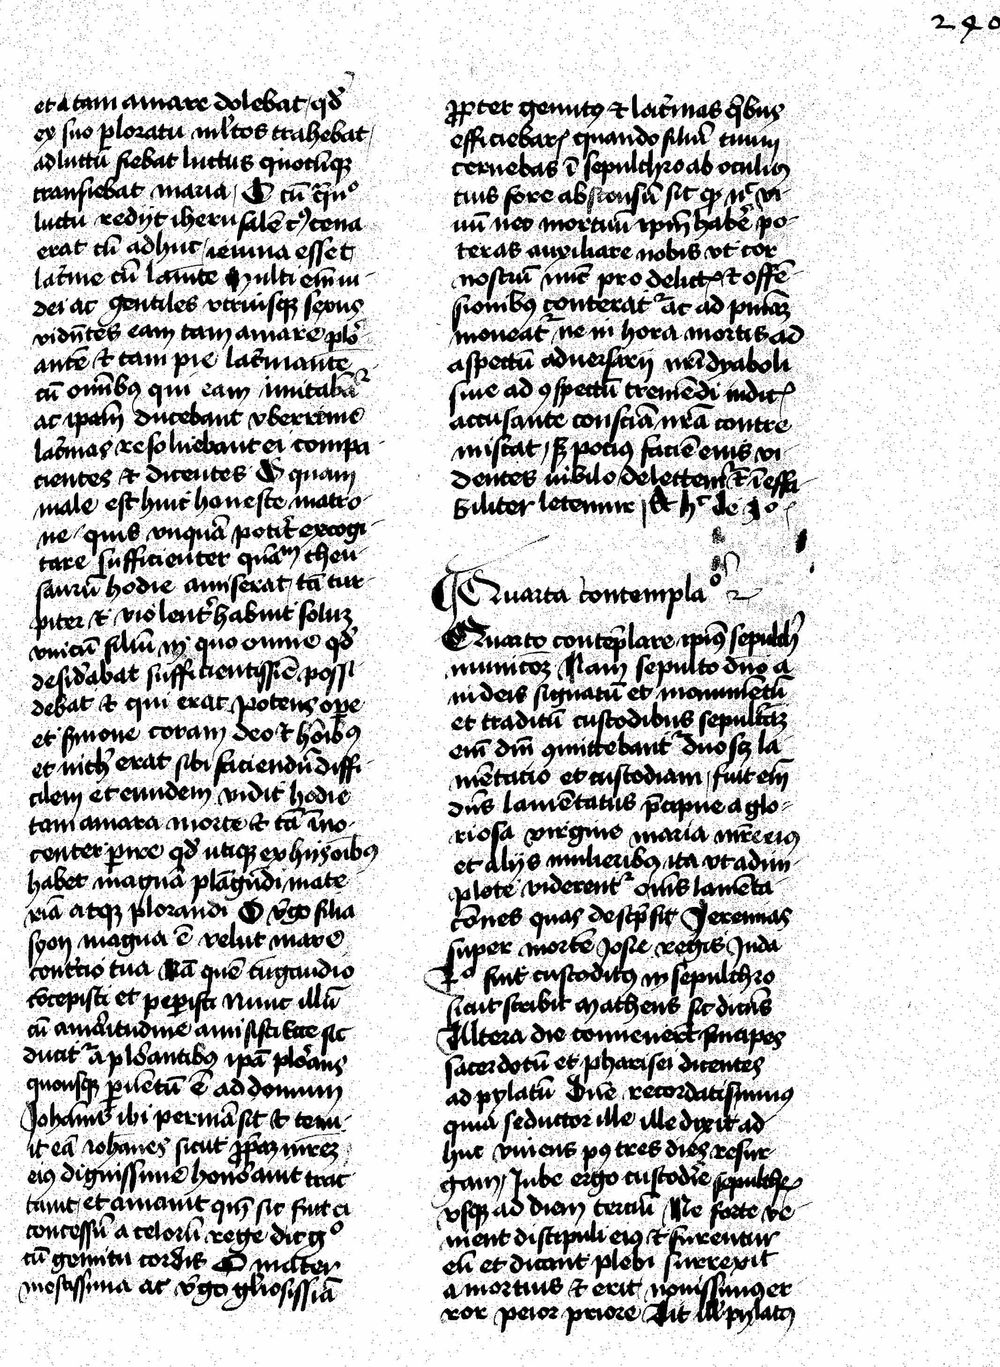 240
et a tam amare dolebat qd̄
ex suo ploratu ml̄tos trahebat
ad luctū fiebat luctus quocūqꝫ
transiebat maria O cū
luctu redijt iherusalē
erat cū adhuc ieiuna esset
lac̄me cū Multi em̄ iu
dei ac gentiles vtriusqꝫ sexus
vidn̄tes eam tam amare plo
rante et tam pie lac̄mante
cū om̄ibꝰ qui eam imitabāt̄
ac ipam̄ ducebant vberrime
lac̄mas resoluebant ei compa
cientes et dicentes O quam
male est huic honeste matro
ne quis vnquā potit̄ excogi
tare sufficienter quām then
saurū hodie amiserat tā tur
piter et violent̄ habuit solum
vnicū filiū in quo omne qd̄
desid̄abat sufficientissiē possi
debat et qui erat potens ope
et s̄mone coram deo et hōibꝰ
et nich̄ erat sibi faciendū diffi
cilem et eundem vidit hodie
tam amara morte et tā īno
center ꝑire qd̄ utiqꝫ ex hijs oībꝰ
habet magnā plāgendi mate
riā atqꝫ plorandi O v̄go filia
syon magna ē velut mare
cont̄cio tua Nā quē cū gaudio
cōcepisti et peꝑisti Nunc illū
cū amaritudine amisisti Ecce sic
ducit̄ a plorantibꝰ ipā plorans
quousqꝫ ꝑuentū ē ad domum
Johannis ibi permāsit et tenu
it eā iohānes sicut ꝓpam mr̄em
eiꝰ dignissime honorauit trac
tauit et amauit qm̄ sic fuit ei
concessū a celorū rege dic gͦ
cū gemitu cordis O mater
mestissima ac v̄go gl̄iosissiā
ꝓpter gemitꝰ et lac̄mas qībus
efficiebaris quando filiū tuum
cernebas ī sepulchro ab oculis
tuis fore absconsū sic qꝫ nec vi
uū nec mortuū ipm̄ habē po
teras auxiliare nobis vt cor
nostrū nūc pro delictis et offē
sionibꝰ conterat̄ ac ad pm̄am
moueat̄ ne in hora mortis ad
aspectū aduersarij nr̄i dyaboli
siue ad ꝯspectū tremēdi iudicis
accusante consciā nrā contre
miscat sꝫ pocius faciē eius vi
dentes iubilo delectem̄ et ineffa
biliter letemur Et hec de 3o
Quarta contemplaco
Quarto contēplare ipiꝰ sepulch̄
municōem Nam sepulto dno a
iudeis signatū et monumētū
et traditū custodibus sepulturam
em̄ dnī ꝯmittebant̄ duo scꝫ la
mētacio et custodiam fuit em̄
dn̄s lamētatus p̄cipue a glo
riosa virgine maria mr̄e eiꝰ
et alijs mulieribꝰ ita vt adim
plete viderent̄ om̄s lamēta
cōnes quas desc̄psit Jeremias
super mortē Josie regis Juda
2o fuit custoditꝰ in sepulchro
sicut scribit Matheus sic dicēs
Altera die conuenerūt p̄ncipes
sacerdotū et pharisei dicentes
ad pylatū Dne recordati sumus
quia seductor ille ille dixit ad
huc viuens pꝰ tres dies resur
gam Jube ergo custodire sepulchrum
vsqꝫ ad diem terciū Ne forte ve
nient discipuli eiꝰ et furentur
eū et dicant plebi surrexit
a mortuis et erit nouissimꝰ er
ror peior priore Ait ill̄ pylatꝰ